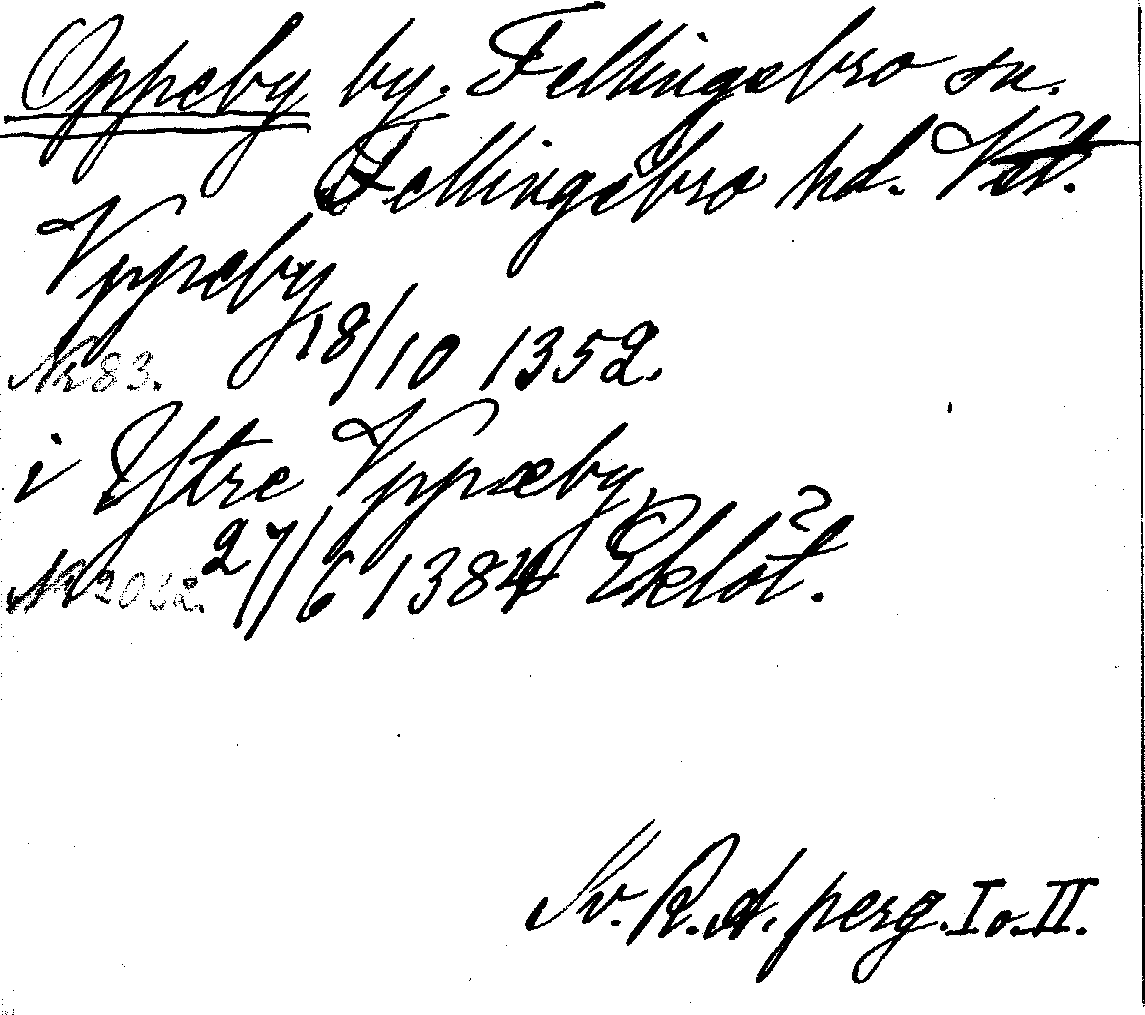 Oppeby by. Fellingsbro sn.
Fellingsbro hd. Vstl.
Vppeby
Nr 83. 18/10 1352.
i Ystre Vppæby
Nr 2062. 27/6 1384 Eklöt. ?
Sv. R. A. perg. I o. II.